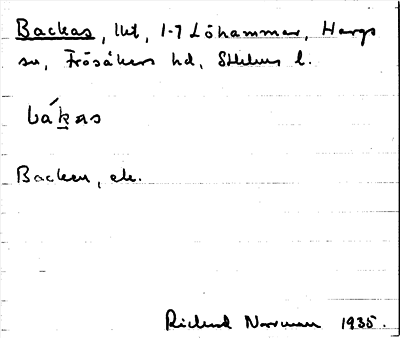 Backas, lht, 1-7 Löhammar, Hargs
sn, Frösåkers hd, Sthlms l.
bákas
Backen, ek.
Richard Norrman 1935.